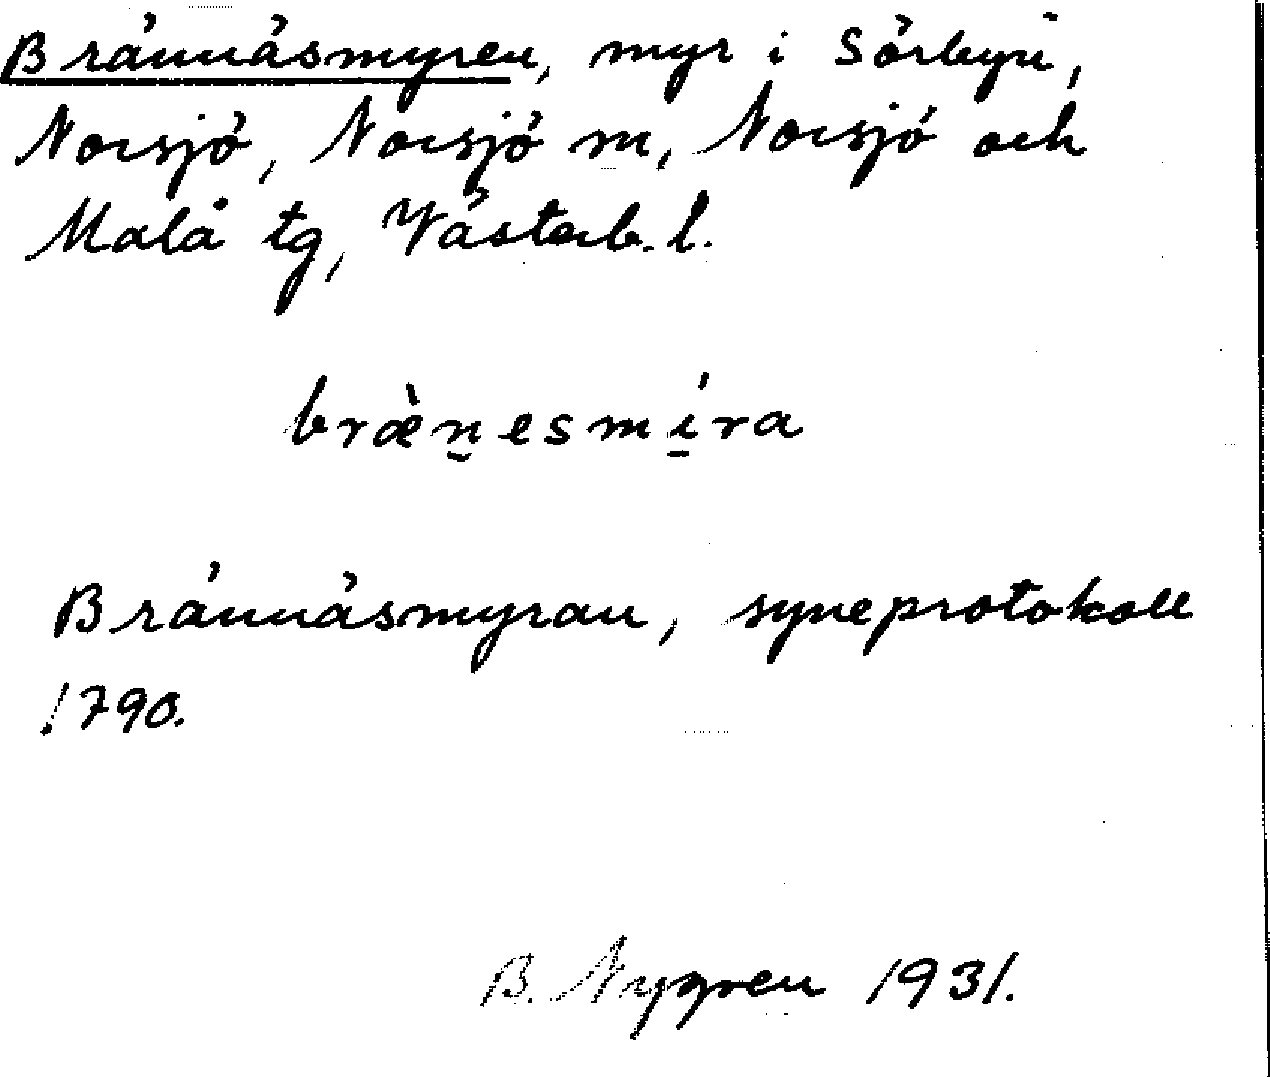 Brännäsmyren, myr i Sörbyn,
Norsjö, Norsjö sn, Norsjö och
Malå tg, Västerb. l.
bræ̀n̠esmí̠ra
Brännäsmyran, syneprotokoll
1790.
B. Nygren 1931.